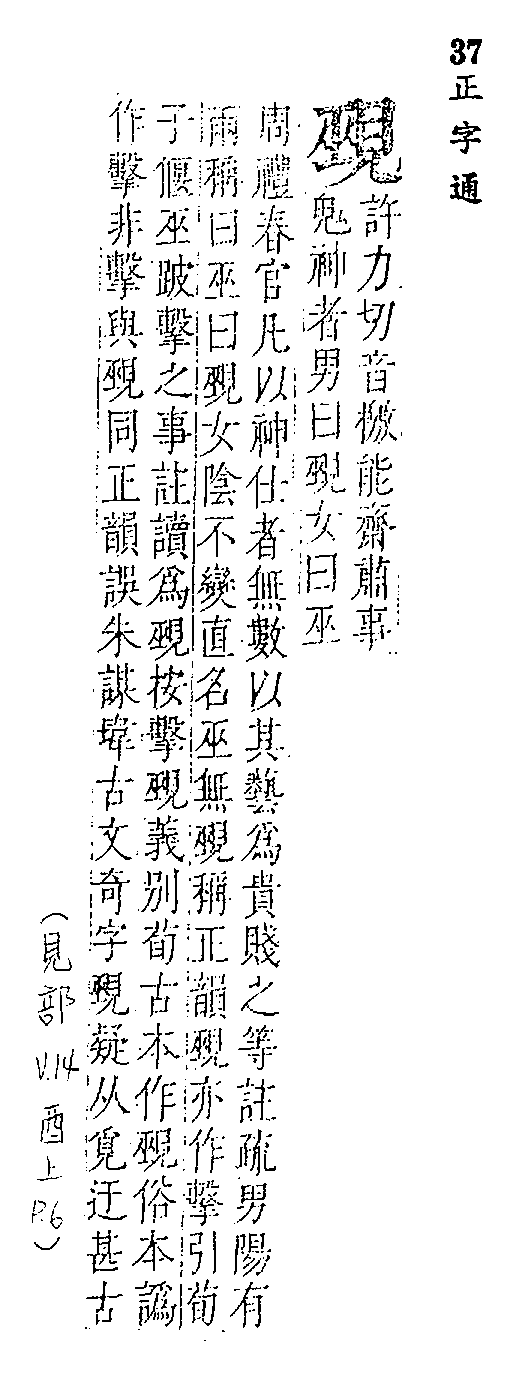 37 正字通
覡 許力切音檄能齋肅事
鬼神者男曰覡女曰巫
周禮春官凡以神仕者無數以其藝為貴賤之等註疏男陽有
兩稱曰巫曰覡女陰不變直名巫無覡稱正韻覡亦作擊引荀
子傴巫跛擊之事註讀為覡按擊覡義別荀古本作覡俗本譌
作擊非擊與覡同正韻誤朱謀㙔古文奇字覡疑从覓迂甚古
(見部 V.14 酉上 P.6)